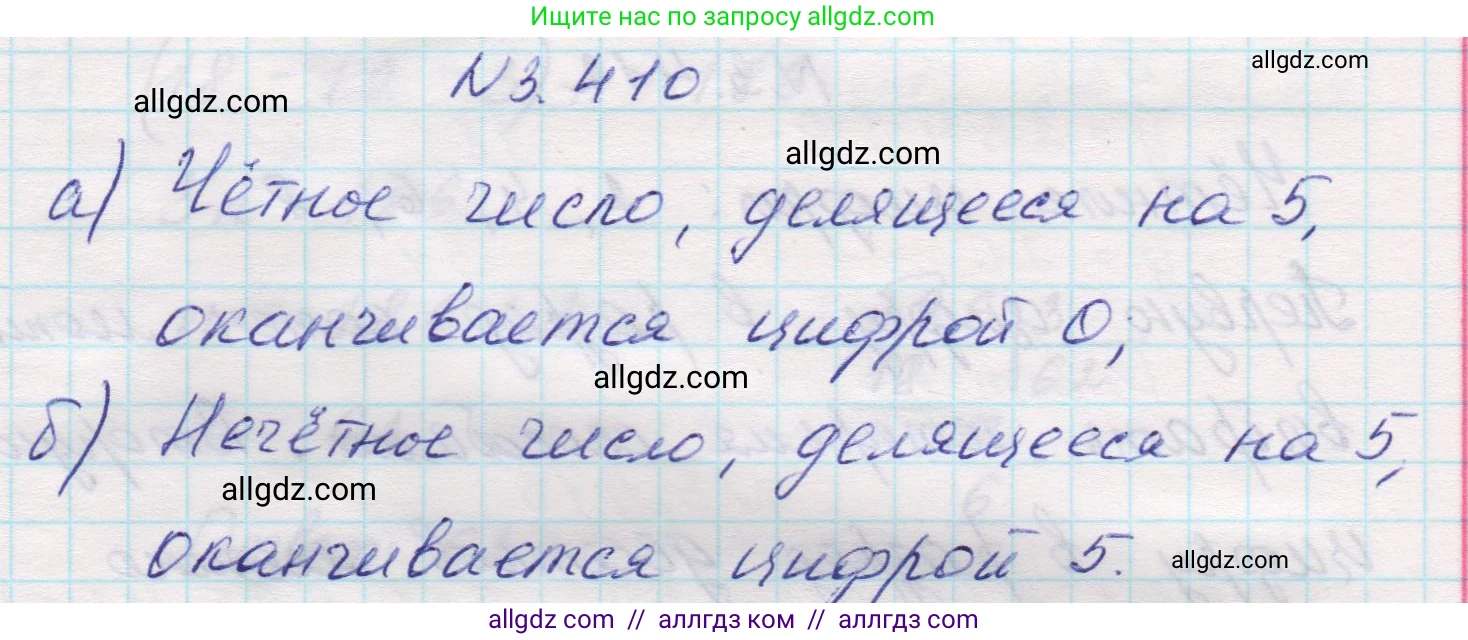 Ищите нас по запросу allgdz.com
N3.410
allgdz.com
allgdz.com
allgdz.com
а) Чётное число, делящееся на 5,
оканчивается цифрой 0;
allgdz.com
б) Нечётное число, делящееся на 5,
allgdz.com
оканчивается цифрой 5.
allgdz.com
allgdz com // аллгдз ком // allgdz com